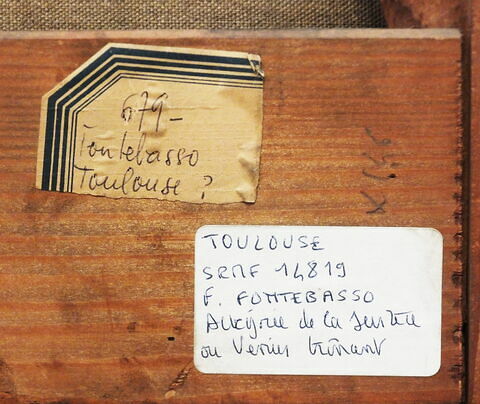 679-
Fontebasso
Toulouse ?
TOULOUSE
SRMF 14819
F. FONTEBASSO
Allégorie de la
ou Venise